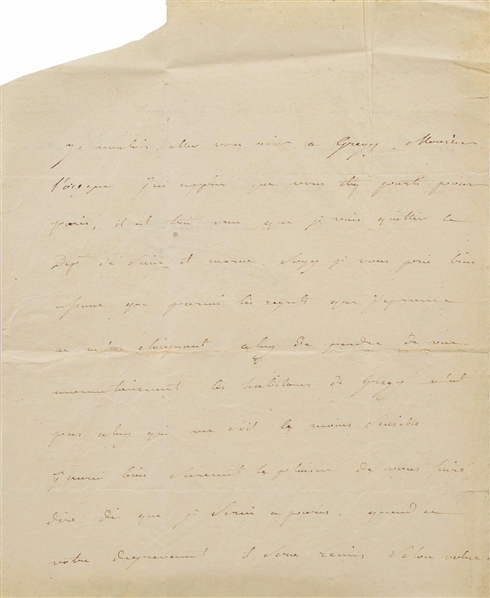 Je voulais aller vous voir a Gregy, Monsieur
lorsque J'ai appris que vous etiez parti pour
paris, il est bien vrai que je vais quitter le
Dept de Seine et marne, Soyez je vous prie bien
que parmi les regrets que J'eprouve
en m'en eloignant celuy de perdre de vue
momentanement les habitans de Gregy n'est
pas celuy qui me soit le moins sensible
J'aurai bien surement le plaisir de vous
dire dès que je serai a paris. quand a
votre degrevement il sera remis selon votre